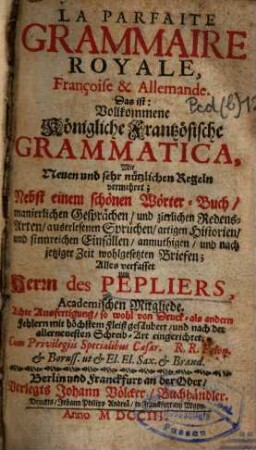 LA PARFAITE
GRAMMAIRE
ROYALE,
Françoise & Allemande.
Das ist:
Vollkommene
Königliche Frantzösische
GRAMMATICA,
Mit
Neuen und sehr nützlichen Regeln
vermehret;
Nebst einem schönen Wörter-Buch/
manierlichen Gesprächen/ und zierlichen Redens-
Arten/ auserlesenen Sprüchen/ artigen Historien/
und sinnreichen Einfällen/ anmuthigen/ und nach
jetziger Zeit wohlgesetzten Briefen;
Alles verfasset
von
Herrn des PEPLIERS,
Academischen Mitgliede.
Achte Ausfertigung/ so wohl von Druck- als andern
Fehlern mit höchstem Fleiß gesäubert/ und nach der
allerneuesten Schreib-Art eingerichtet.
Cum Privilegiis Specialibus Cæsar. R. R. Polon.
& Boruss. ut & El. El. Sax. & Brand.
Berlin und Franckfurt an der Oder/
Verlegts Johann Völcker/ Buchhändler.
Druckts/ Johann Philipp Andreä/ in Franckfurt am Mayn.
Anno MDCCII